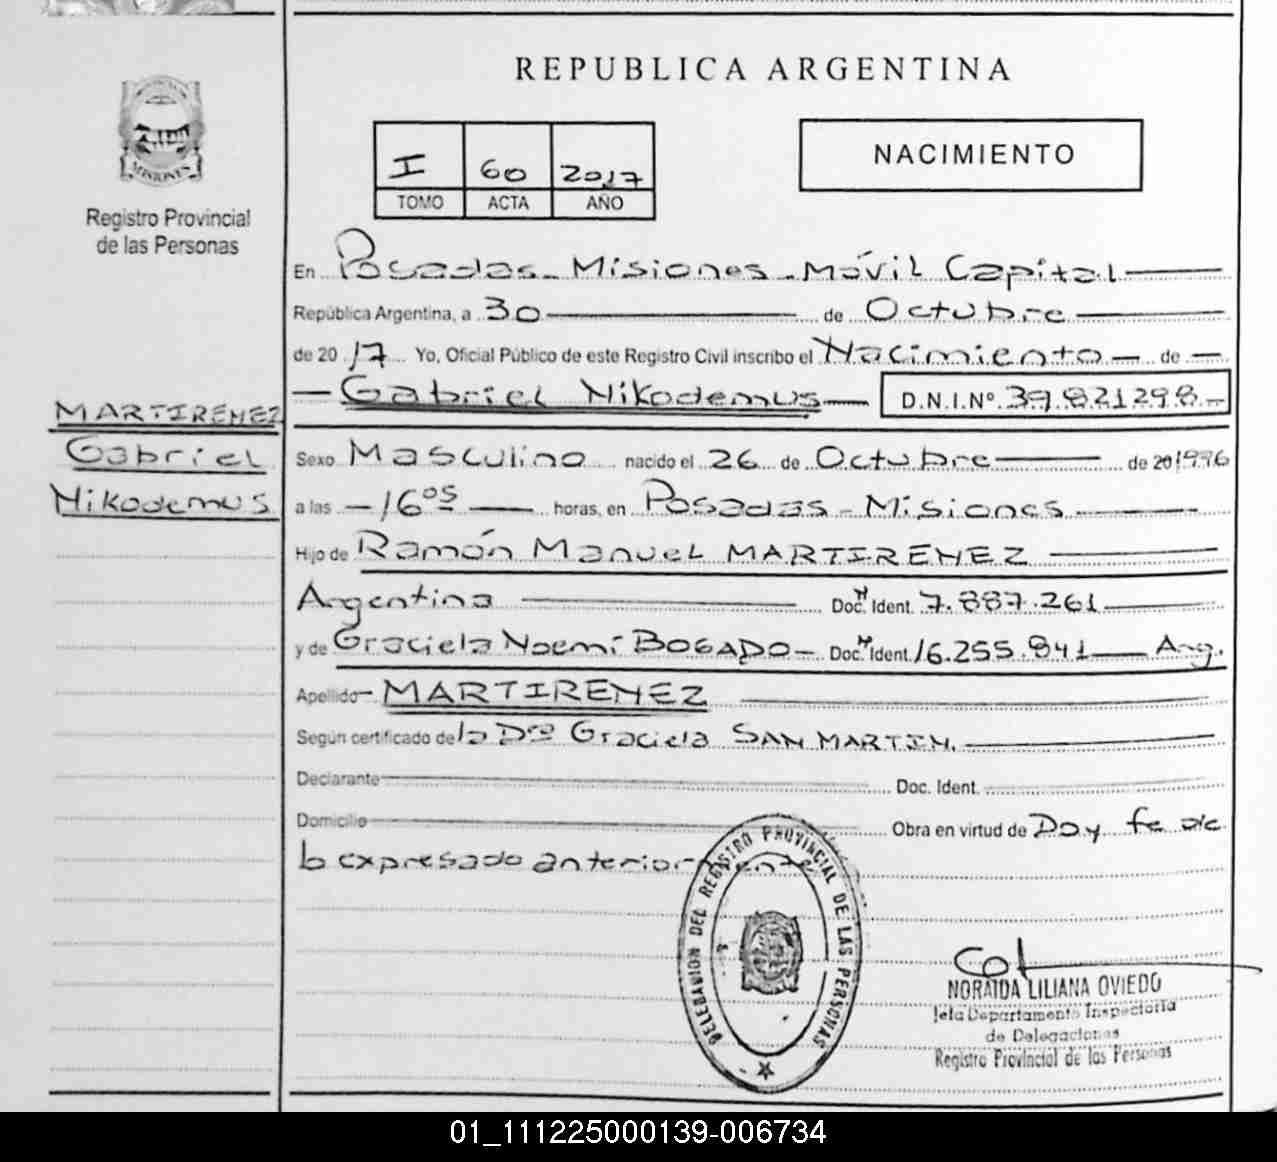 REPUBLICA ARGENTINA
MISIONES
Registro Provincial
de las Personas
I 60 2017
TOMO ACTA AÑO
NACIMIENTO
En Posadas - Misiones - Móvil Capital
República Argentina, a 30 de Octubre
de 20 17 Yo, Oficial Público de este Registro Civil inscribo el Nacimiento de
Gabriel Nikodemus D.N.I.Nº 39.821.298
MARTIRENEZ
Gabriel
Nikodemus
Sexo Masculino nacido el 26 de Octubre de 20 1996
a las 16 05 horas, en Posadas - Misiones
Hijo de Ramón Manuel MARTIRENEZ
Argentina Doc. Ident. 7.887.261
y de Graciela Noemí BOGADO - Doc. Ident. 16.255.841 Arg.
Apellido MARTIRENEZ
Según certificado de la Dra Graciela SAN MARTIN.
Declarante Doc. Ident.
Domicilio Obra en virtud de Doy fe de
lo expresado anteriormente
DELEGACION DEL REGISTRO PROVINCIAL DE LAS PERSONAS
NORAIDA LILIANA OVIEDO
Jefa Departamento Inspectoria
de Delegaciones
Registro Provincial de las Personas
01_111225000139-006734